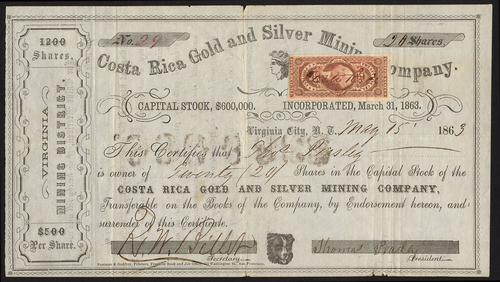 1200
Shares.
VIRGINIA
MINING DISTRICT.
$500
Per Share.
No. 29
20 Shares.
Costa Rica Gold and Silver Mining Company.
CAPITAL STOCK, $600,000. INCORPORATED, March 31, 1863.
Virginia City, N. T. May 15 1863
This Certifies that
is owner of Twenty (20) Shares in the Capital Stock of the
COSTA RICA GOLD AND SILVER MINING COMPANY,
Transferable on the Books of the Company, by Endorsement hereon, and
surrender of this Certificate.
Secretary.
Thomas
President.